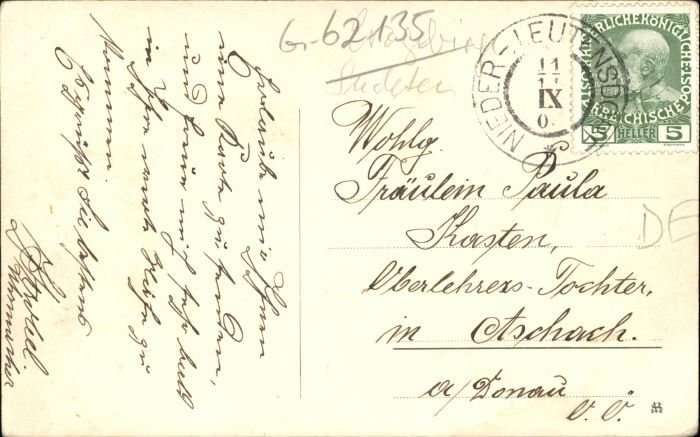 G-62,135
Erzgebirge
Sudeten
NIEDER-LEUTENSD
11
IX
0
KAISERLICHE KÖNIGLICHE ÖSTERREICHISCHE POST
5 HELLER 5
DE
Wohlg.
Fräulein Paula
Kasten,
Oberlehrers-Tochter,
in Aschach.
a/Donau
O. Ö.
Erlaube mir Ihnen
eine Karte zu senden,
und freue mich sehr bald
in Ihre werte Nähe zu
kommen
Es grüßt Sie bestens